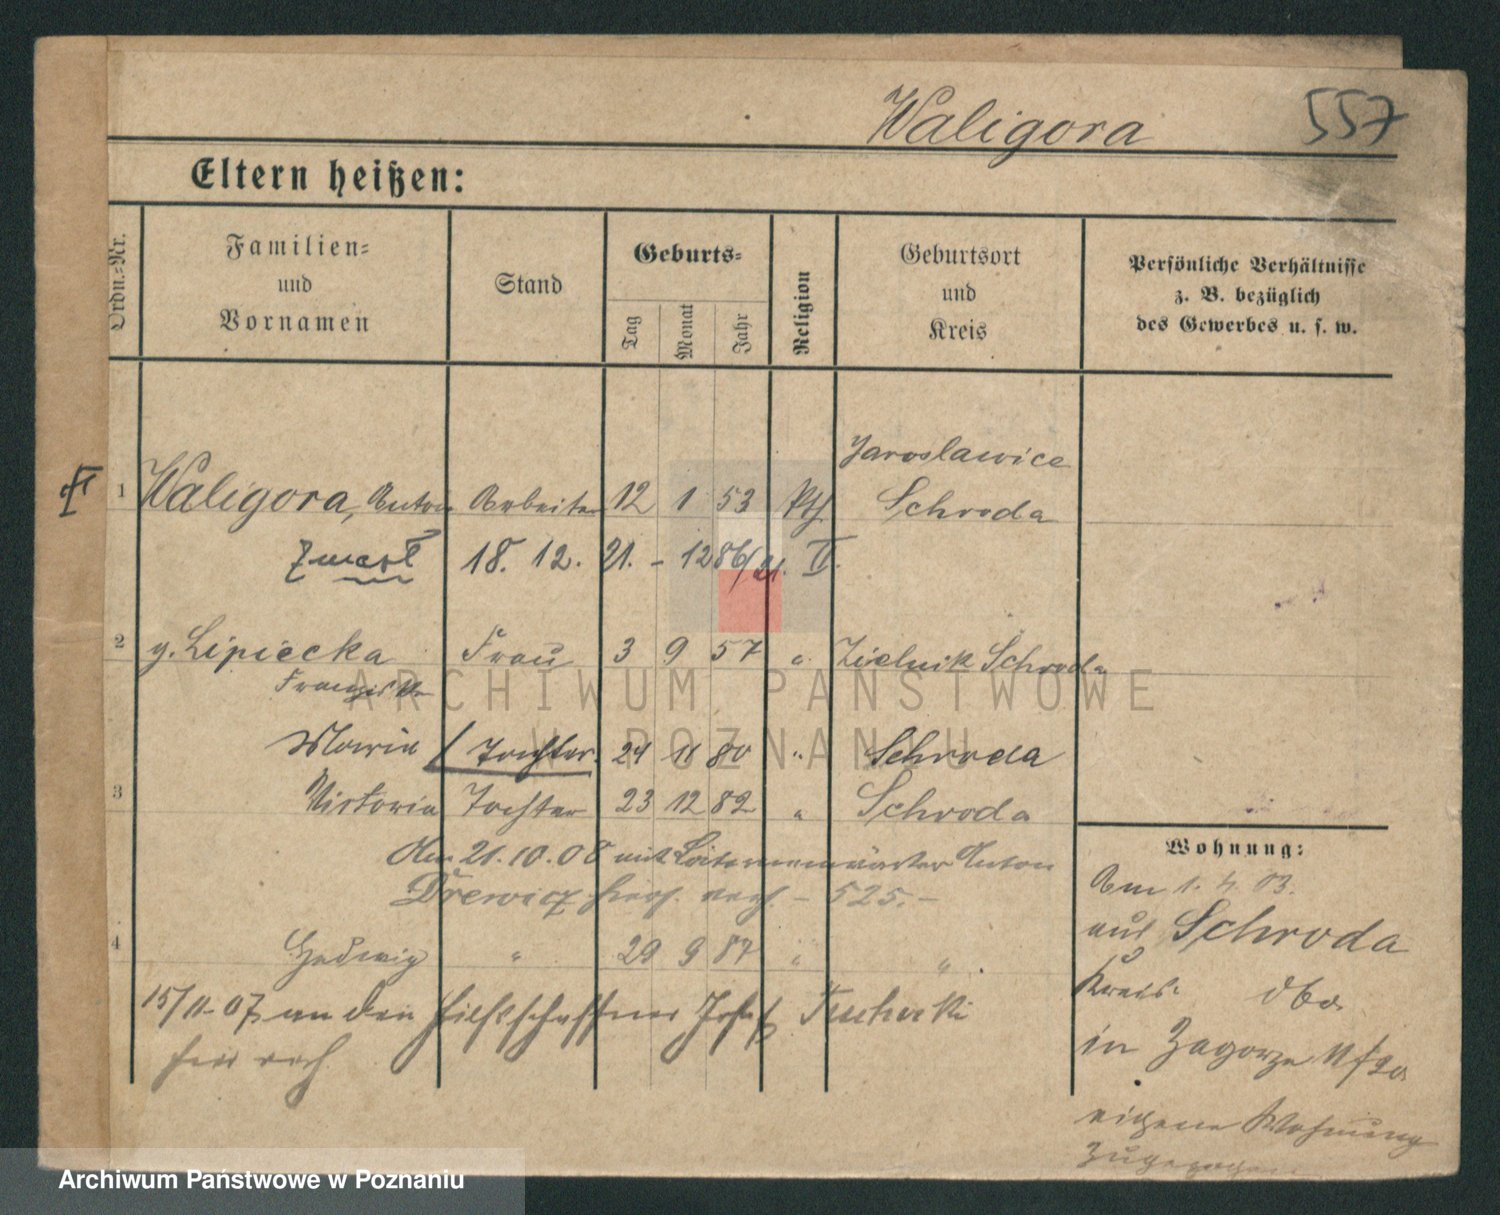 Waligora 557
Eltern heißen:
Ordn.=Nr.
Familien=
und
Vornamen
Stand
Geburts=
Tag
Monat
Jahr
Religion
Geburtsort
und
Kreis
Persönliche Verhältnisse
z. B. bezüglich
des Gewerbes u. s. w.
Jaroslawice
1 Waligora, Anton Arbeiter 12 1 53 kth Schroda
18. 12. 21. - 1286/21. II.
2 g. Lipiecka Frau 3 9 57 " Zielnik Schroda
Franziska
Maria Tochter 24 11 80 " Schroda
3 Victoria Tochter 23 12 82 " Schroda
Am 21.10.08 mit Laternenwärter Anton
Drewicz hier verh. - 525. -
4 Hedwig " 29 9 87 " "
15/11-07 an den Hilfsschaffner Josef
hier verh.
Wohnung:
Am 1. 4. 03.
aus Schroda
Kreis
in Zagorze 11
eigene Wohnung
zugezogen
ARCHIWUM PAŃSTWOWE
W POZNANIU
Archiwum Państwowe w Poznaniu